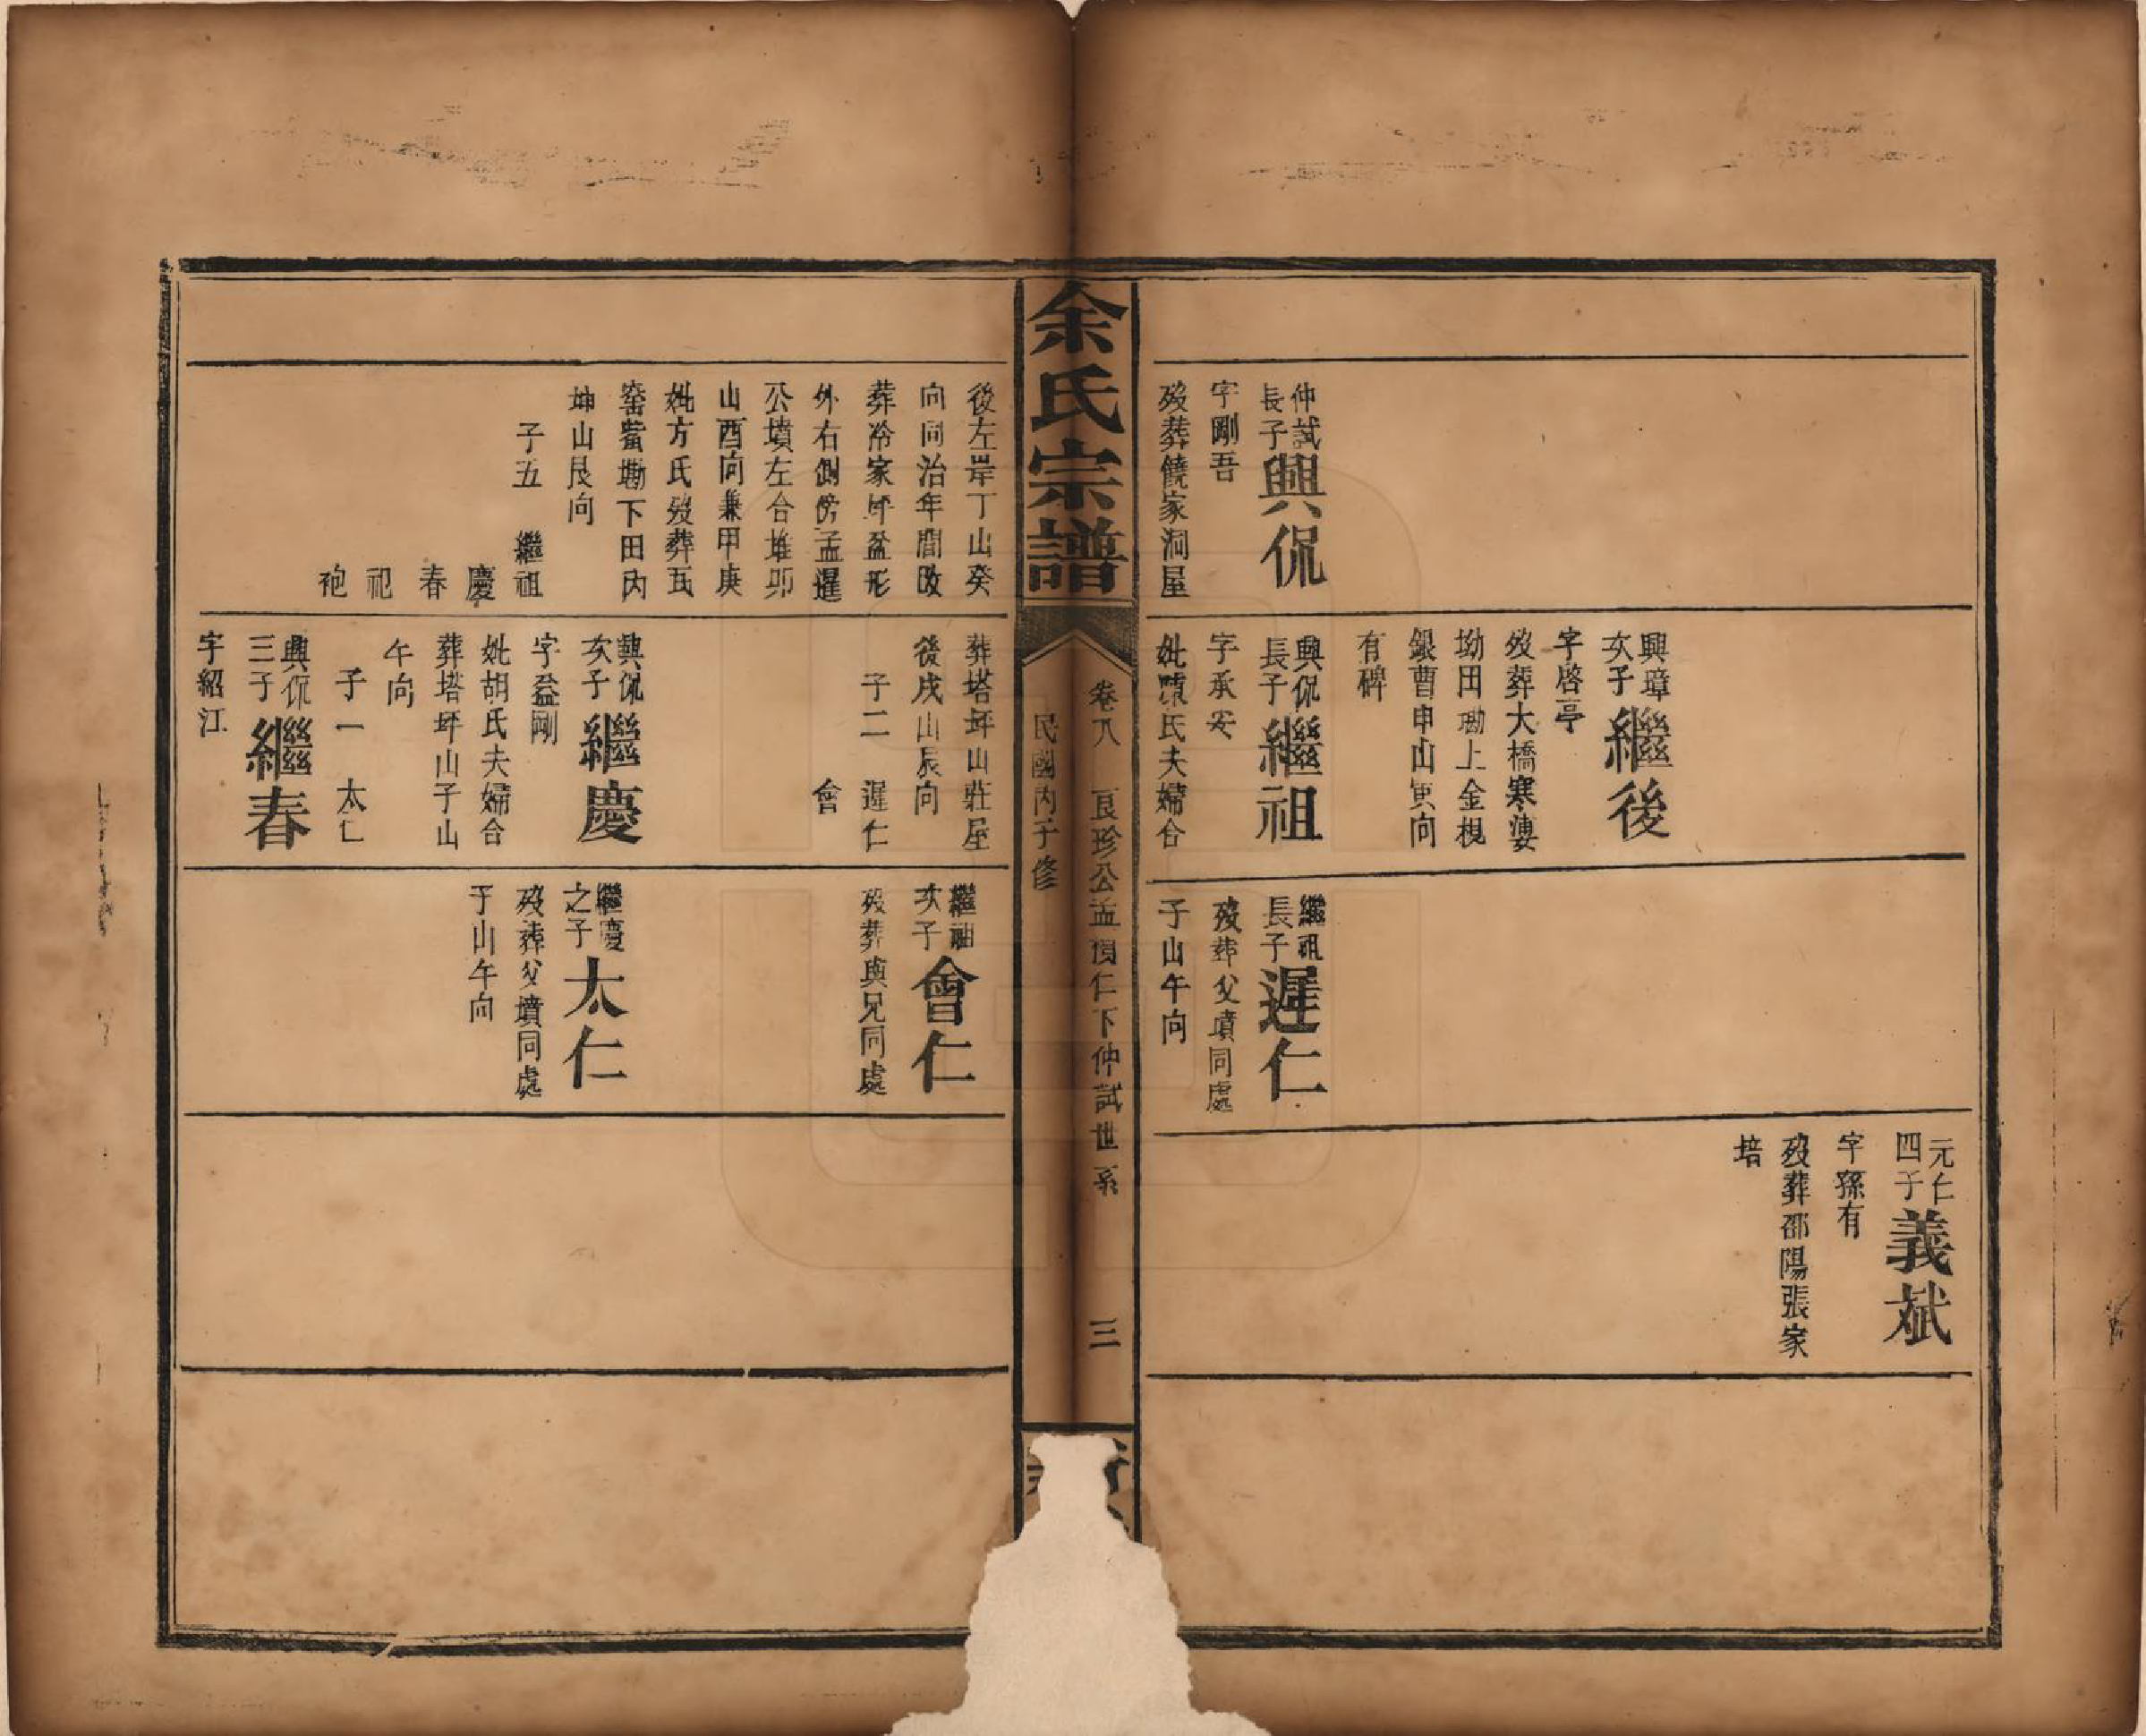 仲試
長子
興侃
字剛吾
歿葬饒家洞屋
興璋
次子
繼後
字啓亭
歿葬大橋寒
坳田磡上金視
銀曹申山寅向
有碑
興侃
長子
繼祖
字承安
妣陳氏夫婦合
繼祖
長子
遲仁
歿葬父墳同處
子山午向
元仁
四子
義斌
字孫有
歿葬邵陽張家
培
余氏宗譜
卷八
良珍公孟賢仁下仲試世系
三
民國丙子修
後左岸丁山癸
向同治年間改
葬冷家坪盆形
外右側傍孟暹
公墳左合堆卯
山酉向兼甲庚
妣方氏歿葬瓦
窑背磡下田內
坤山艮向
子五 繼祖
慶
春
祀
袍
葬塔坪山莊屋
後戌山辰向
子二 遲仁
會
興侃
次子
繼慶
字益剛
妣胡氏夫婦合
葬塔坪山子山
午向
子一 太仁
興侃
三子
繼春
字紹江
繼祖
次子
會仁
歿葬與兄同處
繼慶
之子
太仁
歿葬父墳同處
子山午向